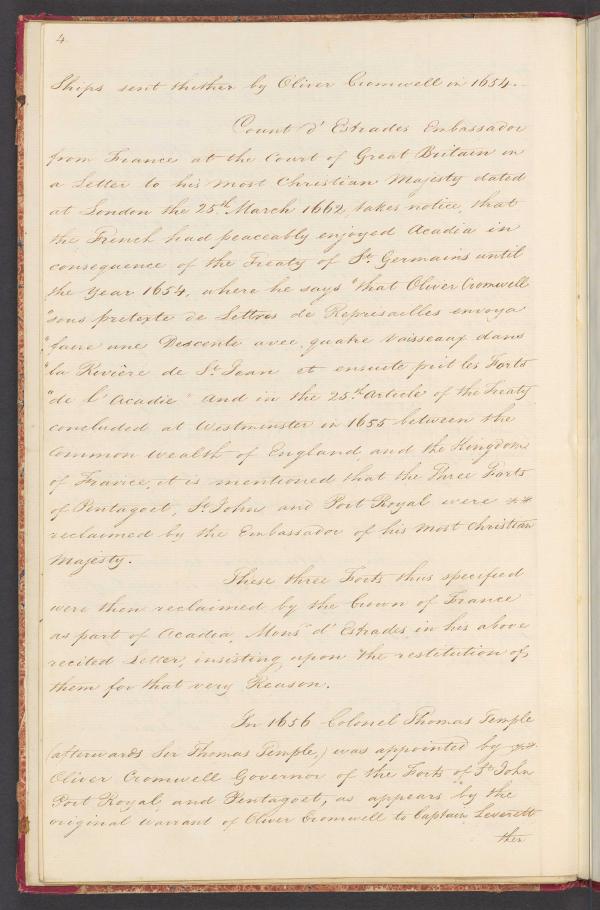 4.
Ships sent thither by Oliver Cromwell in 1654..
Count d' Estrades Embassador
from France at the Court of Great Britain in
a Letter to his most Christian Majesty dated
at London the 25th March 1662, takes notice, that
the French had peaceably enjoyed Acadia in
consequence of the Treaty of St. Germains until
the Year 1654, where he says "that Oliver Cromwell
"sous pretexte de Lettres de Represailles envoya
"faire une Descente avec quatre Vaisseaux dans
"la Revière de St. Jean et ensuite prit les Forts
"de l'Acadie" And in the 25th Article of the Treaty
concluded at Westminster in 1655 between the
Common wealth of England, and the Kingdom
of France, it is mentioned that the Three Forts
of Pentagoet, St. John and Port Royal were
reclaimed by the Embassador of his most Christian
Majesty.
These three Forts thus specified
were then reclaimed by the Crown of France
as part of Acadia, Monsr d' Estrades in his above
recited Letter, insisting upon the restitution of,
them for that very Reason.
In 1656 Colonel Thomas Temple
(afterwards Sir Thomas Temple,) was appointed by
Oliver Cromwell Governor of the Forts of St. John
Port Royal, and Pentagoet, as appears by the
original warrant of Oliver Cromwell to Captain Leverett
then